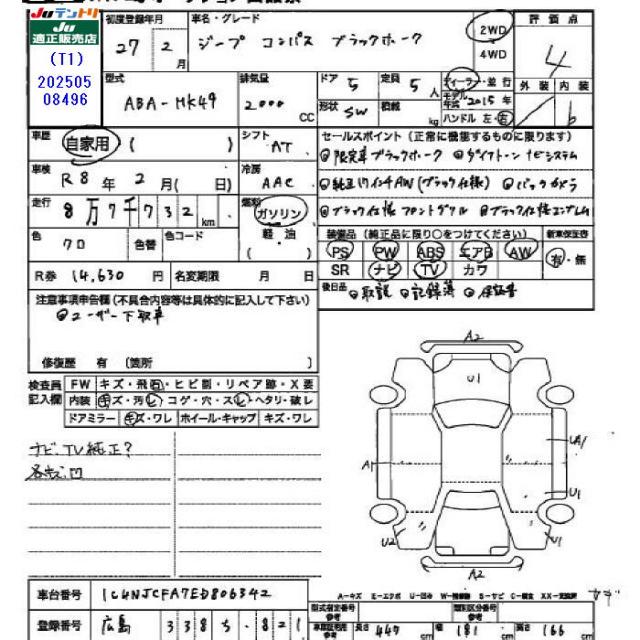 JUテントリ
JU
適正販売店
(T1)
202505
08496
初度登録年月
27年 2月
車名・グレード
ジープ コンパス ブラックホーク
2WD
4WD
評価点
4
型式
ABA-MK49
排気量
2000 CC
ドア 5
定員 5人
形状 SW
積載 kg
ディーラー・並行
モデル年式 2015年
ハンドル 左・右
外装 内装
b
車歴
自家用 ( )
シフト
AT
セールスポイント (正常に機能するものに限ります)
限定車ブラックホーク
車検
R8年2月( 日)
冷房
AAC
純正17インチAW(ブラック仕様) バックカメラ
走行
8万7千732km
燃料
ガソリン
軽・油
( )
ブラック仕様フロントグリル ブラック仕様エンブレム
色
クロ
色替
色コード
装備品 (純正品に限り○をつけてください)
新車保証書
PS PW ABS エアB AW
SR ナビ TV カワ
有・無
R券 14,630円
名変期限 月 日
後日品 取説 記録簿 保証書
注意事項申告欄(不具合内容等は具体的に記入して下さい)
ユーザー下取車
修復歴 有 〔箇所 〕
検査員記入欄
FW キズ・飛石・ヒビ割・リペア跡・X要
内装 キズ・汚レ・コゲ・穴・スレ・ヘタリ・破レ
ドアミラー キズ・ワレ ホイール・キャップ キズ・ワレ
ナビ、TV純正?
A2
U1
A1
UA1
U1
U2
A2
車台番号 1C4NJCFA7ED806342
登録番号 広島 338 5・821
A-キズ E-エクボ U-凹み
型式指定番号
類別区分番号
長さ 449 cm 幅 181 cm 高さ 166 cm